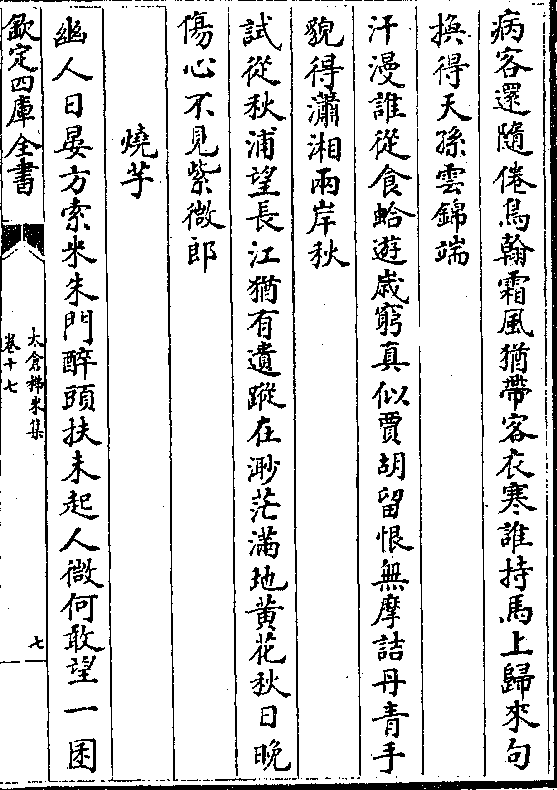 病客還隨倦鳥翰霜風猶帶客衣寒誰持馬上歸來句
換得天孫雲錦端
汗漫誰從食蛤遊歳窮真似賈胡留恨無摩詰丹青手
貌得瀟湘兩岸秋
試從秋浦望長江猶有遺蹤在渺茫滿地黃花秋日晚
傷心不見紫微郎
燒芋
幽人日晏方索米朱門醉頭扶未起人微何敢望一囷
欽定四庫全書
太倉稊米集
卷十七
七